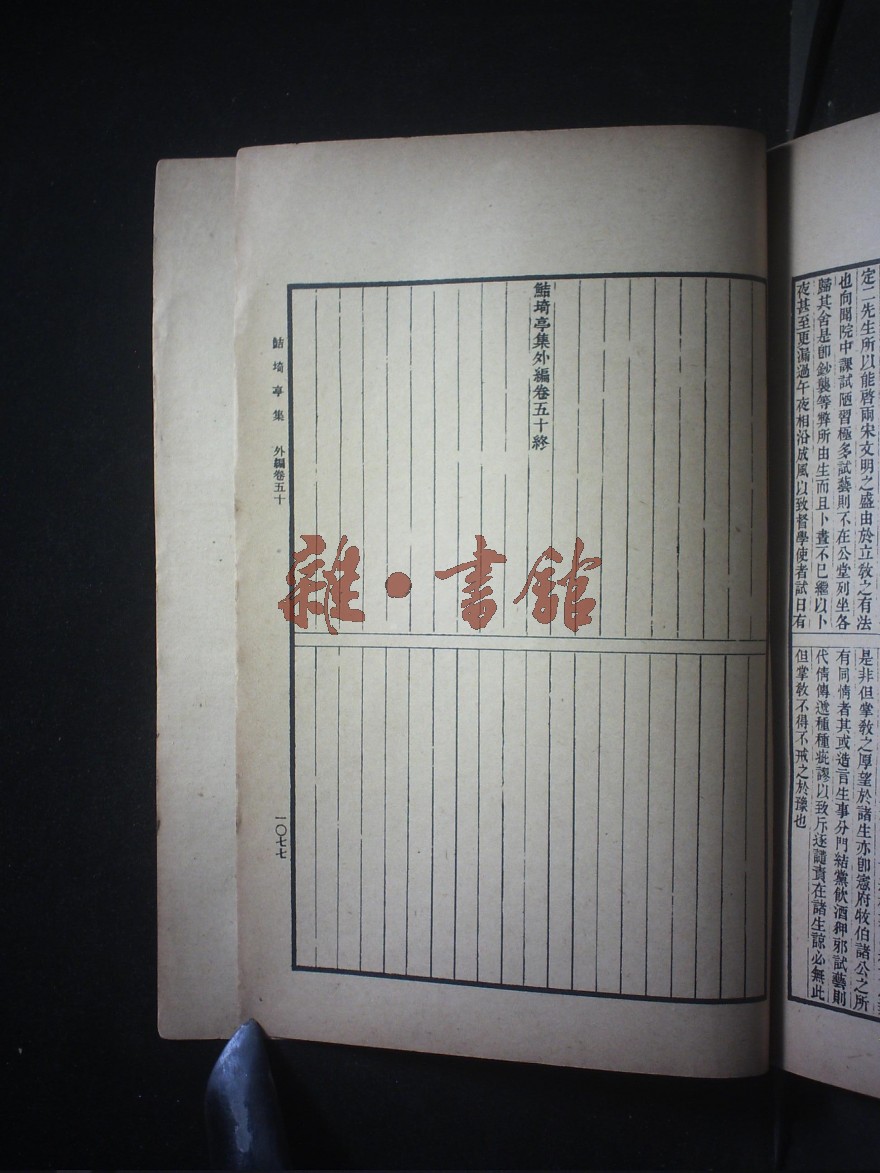 定二先生所以能啓兩宋文明之盛由於立敎之有法
也向聞院中課試陋習極多試藝則不在公堂列坐各
歸其舍是卽鈔襲等弊所由生而且卜晝不已繼以卜
夜甚至更漏過午夜相沿成風以致督學使者試日有
是非但掌敎之厚望於諸生亦卽憲府牧伯諸公之所
有同情者其或造言生事分門結黨飲酒狎邪試藝則
代倩傳遞種種疵謬以致斥逐譴責在諸生諒必無此
但掌敎不得不戒之於豫也
鮚埼亭集外編卷五十終
鮚埼亭集 外編卷五十
一〇七七
雜·書館